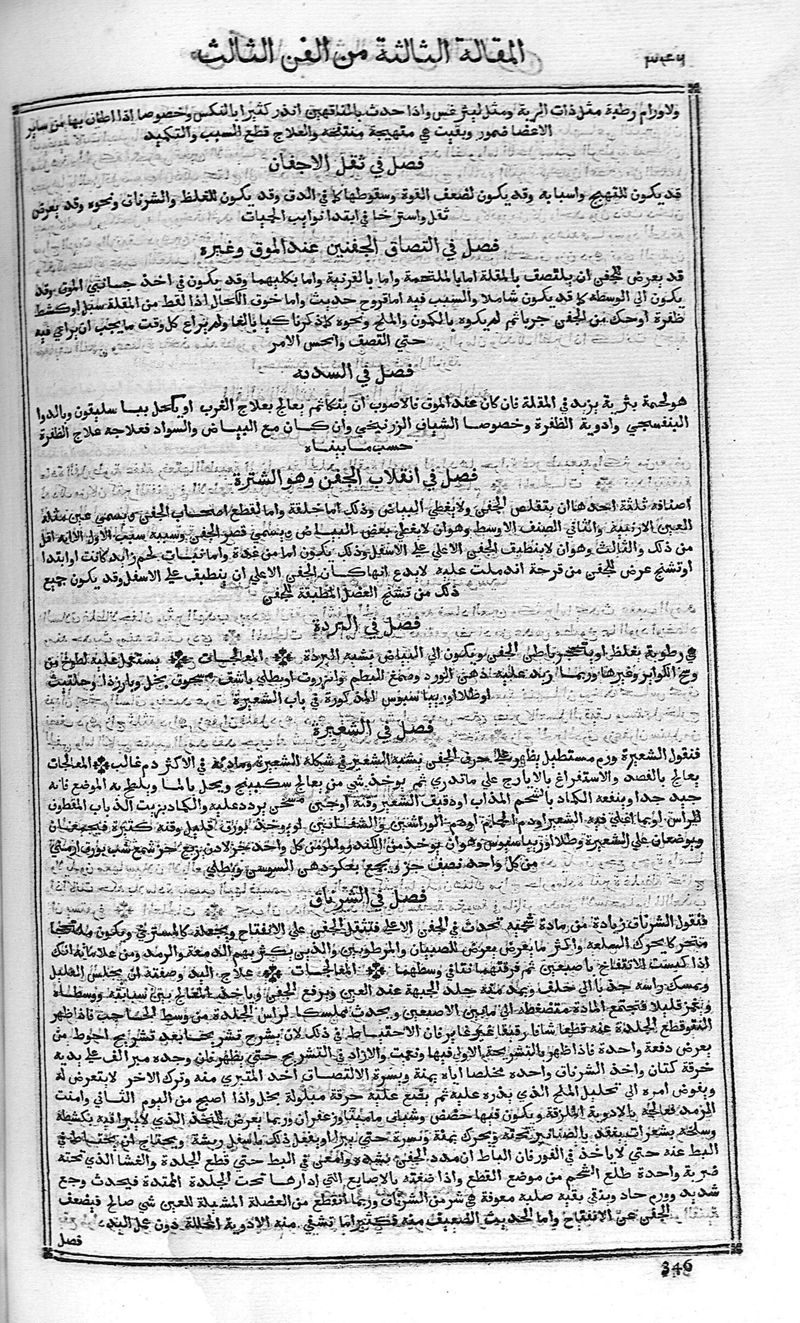 المقالة الثالثة من الفن الثالث
٣٤٦
ولاورام رطبة مثل ذات الرية ومثل ليثرغس واذا حدث بالناقهين انذر كثيرا بالنكس وخصوصا اذا اطان بها من ساير
الاعضا ضمور وبقيت هي متهيجة منتفخة والعلاج قطع السبب والتكميد
فصل في ثقل الاجفان
قد يكون للتهيج واسبابه وقد يكون لضعف القوة وسقوطها كا في الدق وقد يكون للغلظ والشرناق ونحوه وقد يعرض
ثقل واسترخا في ابتدا نوايب الحميات
فصل في التصاق الجفنين عند الموق وغيره
قد يعرض للجفن ان يلتصق بالمقلة اما بالملتحمة واما بالقرنية واما بكليهما وقد يكون في احد جانبي الموق وقد
يكون الي الوسط كا قد يكون شاملا والسبب فيه اما قروح حدثت واما خرق الكحال اذا لقط من المقلة سبل او كشط
ظفرة او حك من الجفن جربا ثم لم يكوه بالكمون والملح ونحوه كا ذكرنا كيا بالغا ولم يراع كل وقت ما يجب ان يراعي فيه
حتي التصق والحس الامر
فصل في السدية
هو لحمة بثرية يزيد في المقلة فان كان عند الموق فالاصوب ان ينكا ثم يعالج بعلاج الغرب او يكحل ببا سليقون وبالدوا
البنفسجي وادوية الظفرة وخصوصا الشياف الزرنيخي وان كان مع البياض والسواد فعلاجه علاج الظفرة
حسب ما بيناه
فصل في انقلاب الجفن وهو الشترة
اصنافه ثلثة احدها ان يتقلص الجفن ولا يغطي البياض وذلك اما خلقة واما لقطع اصحاب الجفن ويسمي عين مثله
العين الارنبية والثاني الصنف الاوسط وهو ان لا يغطي بعض البياض ويسمي قصر الجفن وسببه سبب الاول الا انه اقل
من ذلك والثالث وهو ان لا ينطبق الجفن الاعلي علي الاسفل وذلك يكون اما من غدة واما نبات لحم زايد كانت ابتدا
او تشنج عرض للجفن من قرحة اندملت عليه لا يدع انهاك ان الجفن الاعلي ان ينطبق علي الاسفل وقد يكون جميع
ذلك من تشنج العضل المطبقة للجفن
فصل في البردة
هي رطوبة تغلظ او تتحجر بباطن الجفن ويكون الي البياض تشبه البردة المعالجات يستعمل عليه لطوخ من
وسخ الكواير وغيرها وربما زيد عليه دهن الورد وصمغ البطم وانزروت او يطلي باشق مسحوق بخل وبارزذا وحلتيت
او طلا اوريباسيوس المذكورة في باب الشعيرة
فصل في الشعيرة
فنقول الشعيرة ورم مستطيل يظهر علي حرف الجفن يشبه الشعير في شكله الشعيرة ومادته في الاكثر دم غالب المعالجات
يعالج بالفصد والاستفراغ بالايارج علي ما تدري ثم يوخذ شي من يعالج سكبينج ويحل بالما ويلطخ به الموضع فانه
جيد جدا وينفعه الكماد بالشحم المذاب او دقيق الشعير وقنة او خبز مسخن يردد عليه والكماد بزيت الذباب المقطون
الراس او بما اغلي فيه الشعير او دم الحمام او دم الوراشين والشفانين او يوخذ بورق قليل وقنه كثيرة فيجمعان
ويوضعان علي الشعيرة وطلا اوريباسيوس وهو ان يوخذ من الكندر والمر من كل واحد جز لادن ربع جز شمع شب بورق ارمني
من كل واحد نصف جز ويجمع بعكر دهن السوسن ويطلي
فصل في الشرناق
فنقول الشرناق زيادة من مادة شحمية تحدث في الجفن الاعلي فتثقل الجفن علي الانفتاح وتجعله كالمسترخي ويكون ملتحما
متحركا يحرك السلعة واكثر ما يعرض يعرض للصبيان والمرطوبين والذين يكثر بهم الدمعة والرمد ومن علاماته انك
اذا كبست الانتفاخ باصبعين ثم فرقتهما نتا في وسطهما المعالجات علاج اليد وصفته ان يجلس العليل
ويمسك راسه جذبا الي خلف ويمد منه جلد الجبهة عند العين ويرفع الجفن وياخذ المعالج بين سبابته ووسطاه
ويغمز قليلا فتجتمع المادة منضغطة الي ما بين الاصبعين ويحدث ممسك الراس الجلدة من وسط الحاجب فاذا ظهر
النتو قطع الجلدة عنه قطعا شافا رقيقا غير غاير فان الاحتياط في ذلك لان يشرح تشريحا بعد تشريح احوط من
يعرض دفعة واحدة فاذا ظهر بالتشريحة الاولي فبها ونعمت والا زاد في التشريح حتي يظهر فان وجده مبرا لف علي يديه
خرقة كتان واخذ الشرناق واحدة مخلصا اياه يمنة ويسرة الالتصاق اخذ المتبري منه وترك الاخر لا يتعرض له
ويفوض امره الي تحليل الملح الذي يذره عليه ثم يضع عليه خرقة مبلولة بخل واذا اصبح من اليوم الثاني وامنت
الرمد فعالجه بالادوية الملزقة ويكون فيها حضض وشياف ماميثا وزعفران وربما تعرض للمتحد الذي لا يبرا فيه بكشطه
وسلخه بشعرات ينفذ بالصنانير تحته ويحرك يمنة ويسرة حتي يبرا او يفعل ذلك باسفل ريشة ويحتاج ان يحتاط في
البط عنه حتي لا ياخذ في الغور فان الباط ان مدد الجفن بشدة وامعن في البط حتي قطع الجلدة والغشا الذي تحته
ضربة واحدة طلع الشحم من موضع القطع واذا ضغطته بالاصابع التي ادارها تحت الجلدة الممتدة فيحدث وجع
شديد وورم حاد وبقي بقية صلبة معوقة هي شر من الشرناق وربما انقطع من العضلة المشيلة للعين شي صالح فيضعف
الجفن عن الانفتاح واما الحديث الضعيف منه فكثيرا ما تشفي منه الادوية المحللة دون عمل اليد
فصل
346